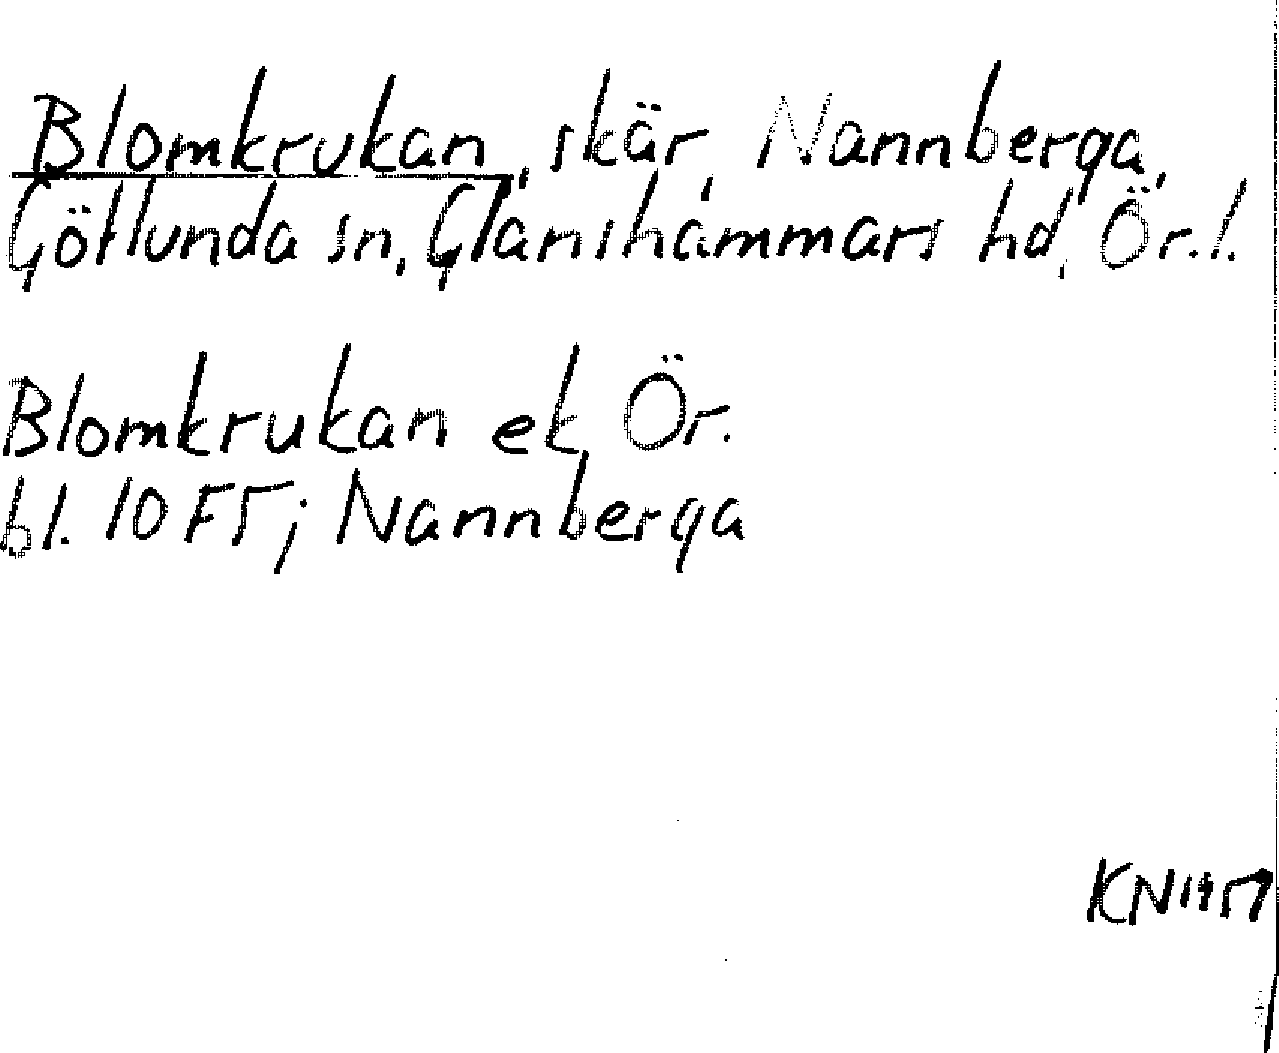 Blomkrukan, skär, Nannberga,
Götlunda sn, Glanshammars hd, Ör.l.
Blomkrukan ek, Ör.
bl. 10 F5; Nannberga
KN 1957